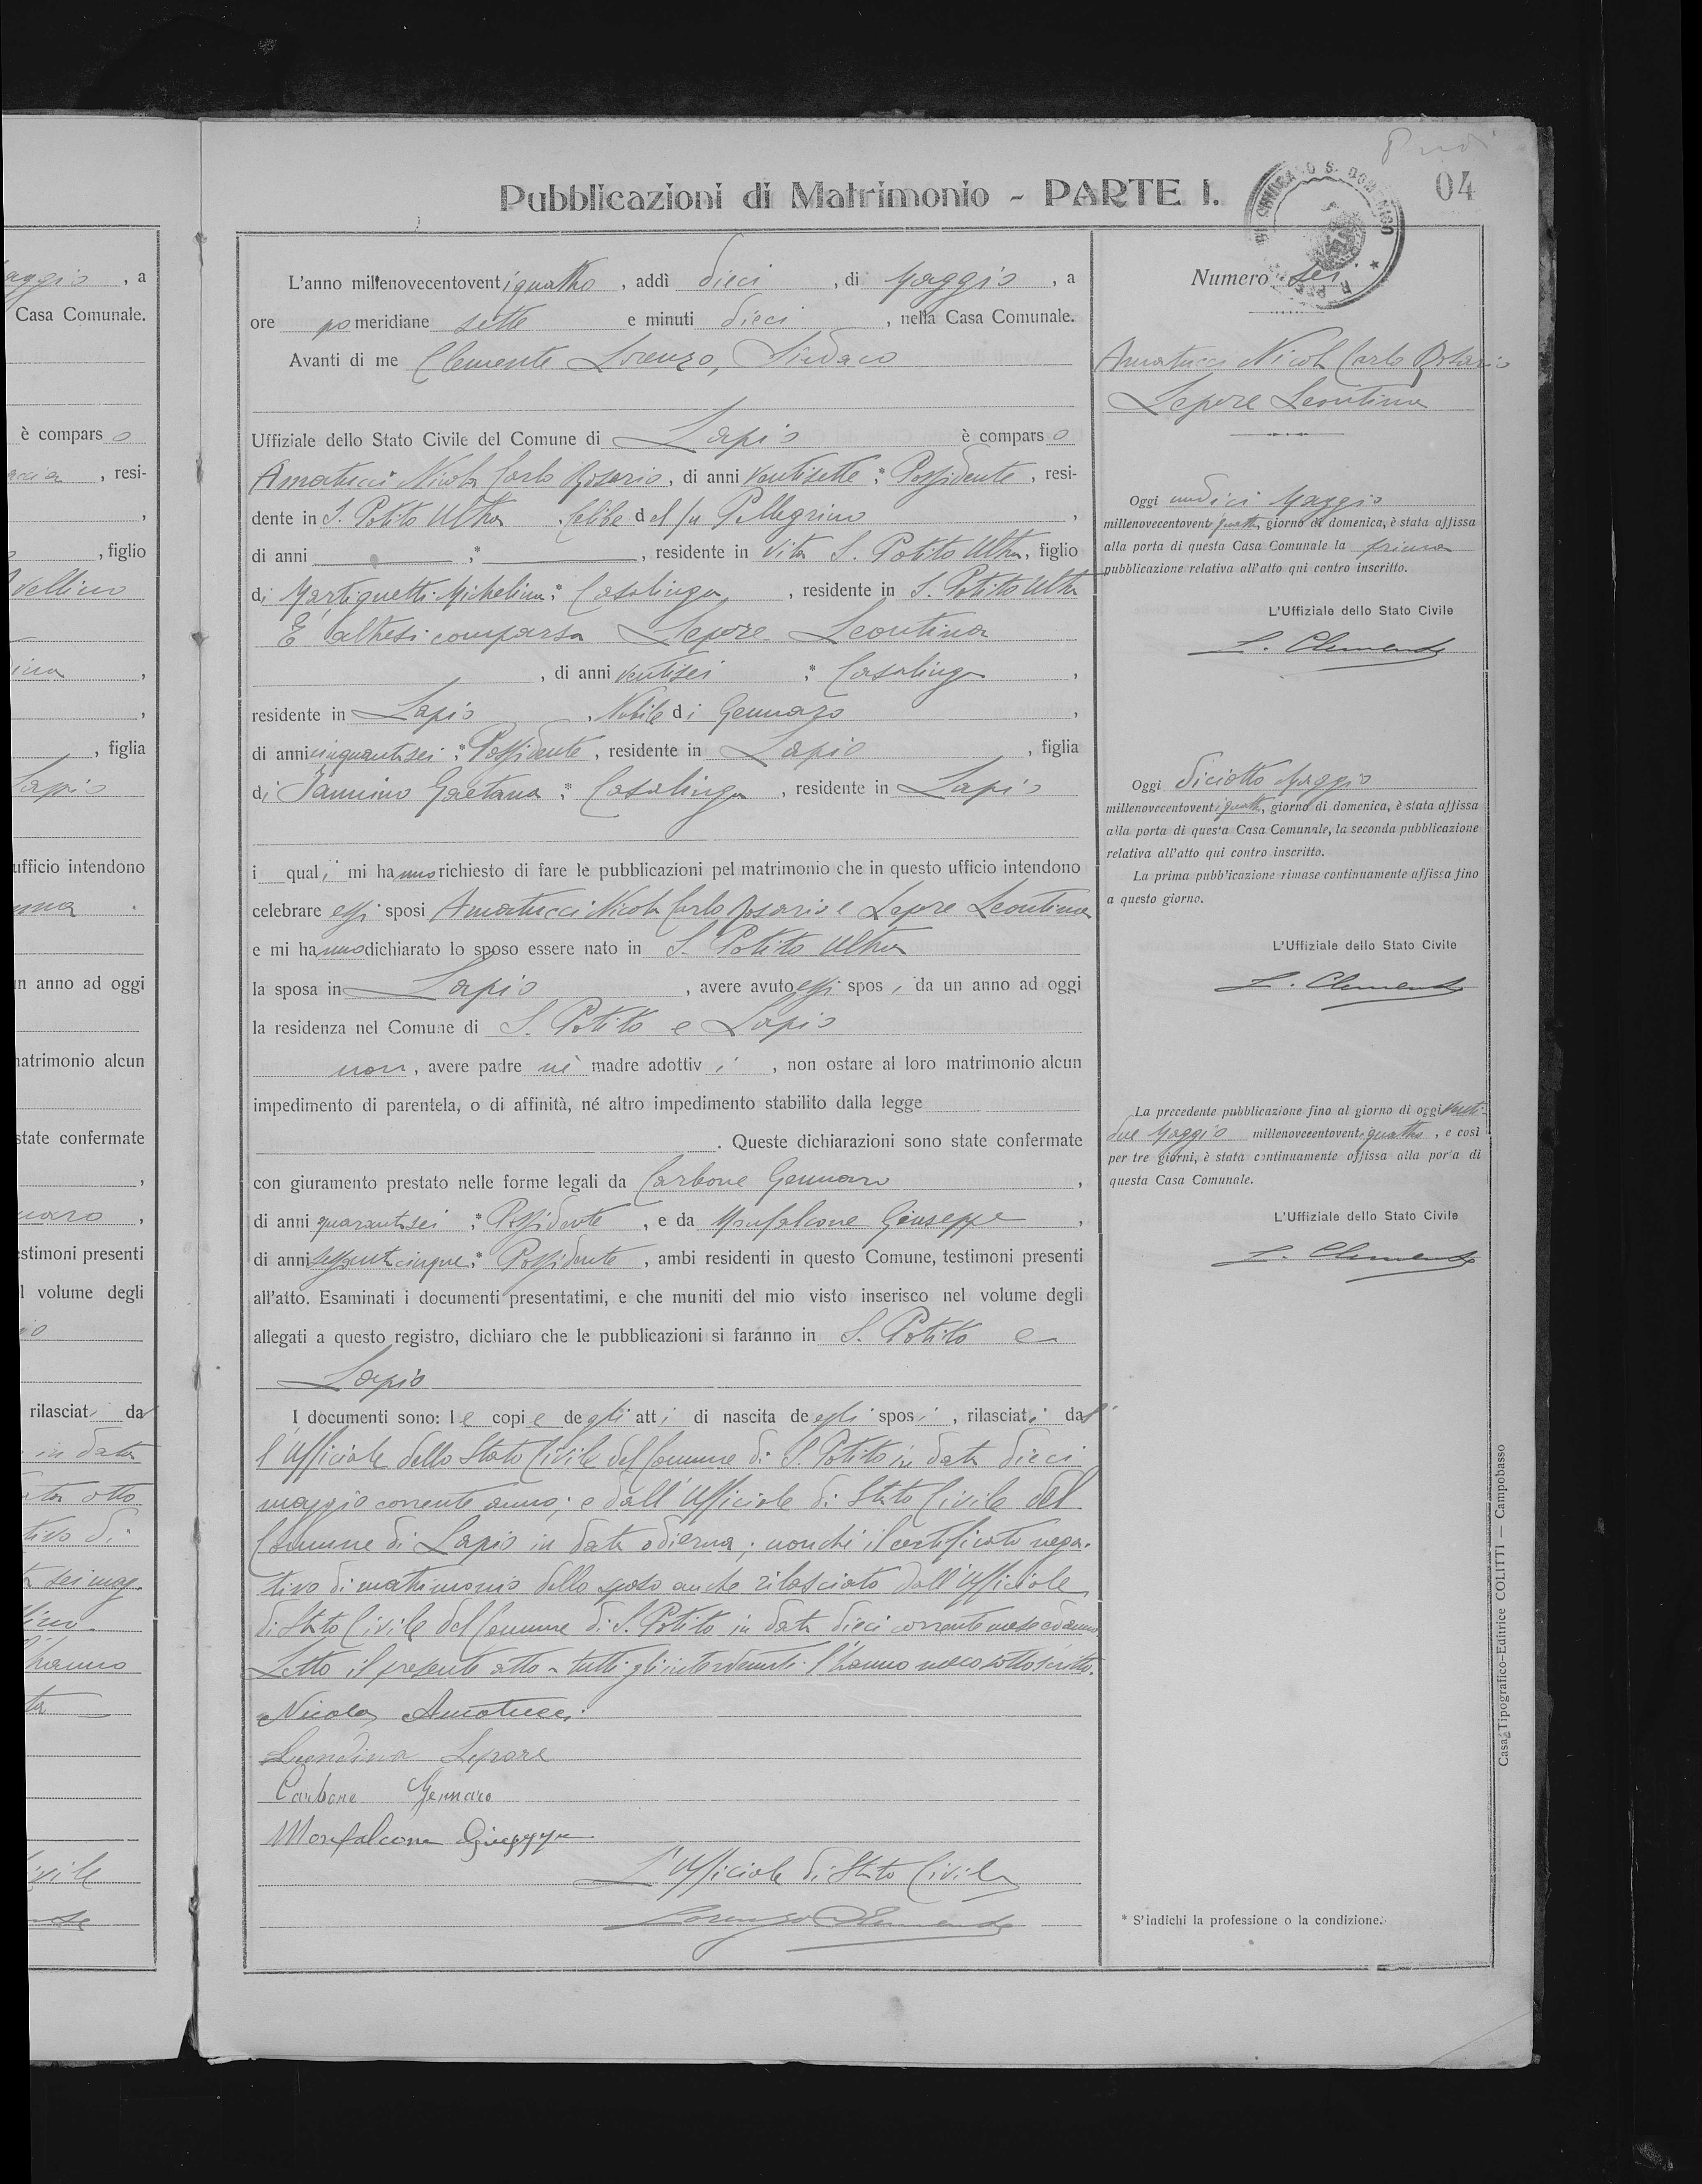 Pubblicazioni di Matrimonio - PARTE I.
04
L'anno millenovecentoventiquattro, addì dieci, di Maggio, a
ore pomeridiane sette e minuti dieci, nella Casa Comunale.
Avanti di me Clemente Lorenzo, Sindaco
Uffiziale dello Stato Civile del Comune di Lapio è comparso
Amatucci Nicola Carlo Rosario, di anni ventisette; * Possidente, resi-
dente in S. Potito Ultra, Celibe del fu Pellegrino,
di anni ; * , residente in vita S. Potito Ultra, figlio
di Martignetti Michelina; * Casalinga, residente in S. Potito Ultra
E' altresi comparsa Lepore Leontina
, di anni ventisei ; * Casalinga,
residente in Lapio, Nubile di Gennaro,
di anni cinquantasei; * Possidente, residente in Lapio, figlia
di Iannino Gaetana; * Casalinga, residente in Lapio
i quali mi hanno richiesto di fare le pubblicazioni pel matrimonio che in questo ufficio intendono
celebrare essi sposi Amatucci Nicola Carlo Rosario e Lepore Leontina
e mi hanno dichiarato lo sposo essere nato in S. Potito Ultra
la sposa in Lapio, avere avuto essi sposi da un anno ad oggi
la residenza nel Comune di S. Potito e Lapio
non, avere padre nè madre adottivi, non ostare al loro matrimonio alcun
impedimento di parentela, o di affinità, né altro impedimento stabilito dalla legge
. Queste dichiarazioni sono state confermate
con giuramento prestato nelle forme legali da Carbone Gennaro,
di anni quarantasei; * Possidente, e da Monfalcone Giuseppe,
di anni sessantacinque; * Possidente, ambi residenti in questo Comune, testimoni presenti
all'atto. Esaminati i documenti presentatimi, e che muniti del mio visto inserisco nel volume degli
allegati a questo registro, dichiaro che le pubblicazioni si faranno in S. Potito e
Lapio
I documenti sono: le copie degli atti di nascita degli sposi, rilasciati dal
l'Ufficiale dello Stato Civile del Comune di S. Potito in data dieci
maggio corrente anno; e dall'Ufficiale di Stato Civile del
Comune di Lapio in data odierna; nonchè il certificato nega-
tivo di matrimonio dello sposo anche rilasciato dall'Ufficiale
di Stato Civile del Comune di S. Potito in data dieci corrente mese ed anno.
Letto il presente atto a tutti gli intervenuti l'hanno meco sottoscritto.
Nicola Amatucci
Leondina Lepore
Carbone Gennaro
Monfalcone Giuseppe
L'Ufficiale di Stato Civile
Lorenzo Clemente
Numero sei
Amatucci Nicola Carlo Rosario
Lepore Leontina
Oggi undici Maggio
millenovecentoventiquattro, giorno di domenica, è stata affissa
alla porta di questa Casa Comunale la prima
pubblicazione relativa all'atto qui contro inscritto.
L'Uffiziale dello Stato Civile
L. Clemente
Oggi diciotto Maggio
millenovecentoventiquattro, giorno di domenica, è stata affissa
alla porta di questa Casa Comunale, la seconda pubblicazione
relativa all'atto qui contro inscritto.
La prima pubblicazione rimase continuamente affissa fino
a questo giorno.
L'Uffiziale dello Stato Civile
L. Clemente
La precedente pubblicazione fino al giorno di oggi venti-
due Maggio millenovecentoventiquattro, e così
per tre giorni, è stata continuamente affissa alla porta di
questa Casa Comunale.
L'Uffiziale dello Stato Civile
L. Clemente
* S'indichi la professione o la condizione.
Casa Tipografico-Editrice COLITTI — Campobasso
aggio, a
Casa Comunale.
è comparso
, resi-
, figlio
Avellino
, figlia
Lapio
ufficio intendono
un anno ad oggi
matrimonio alcun
state confermate
testimoni presenti
l volume degli
rilasciati da
in data
otto
tivo di
sei mag.
hanno